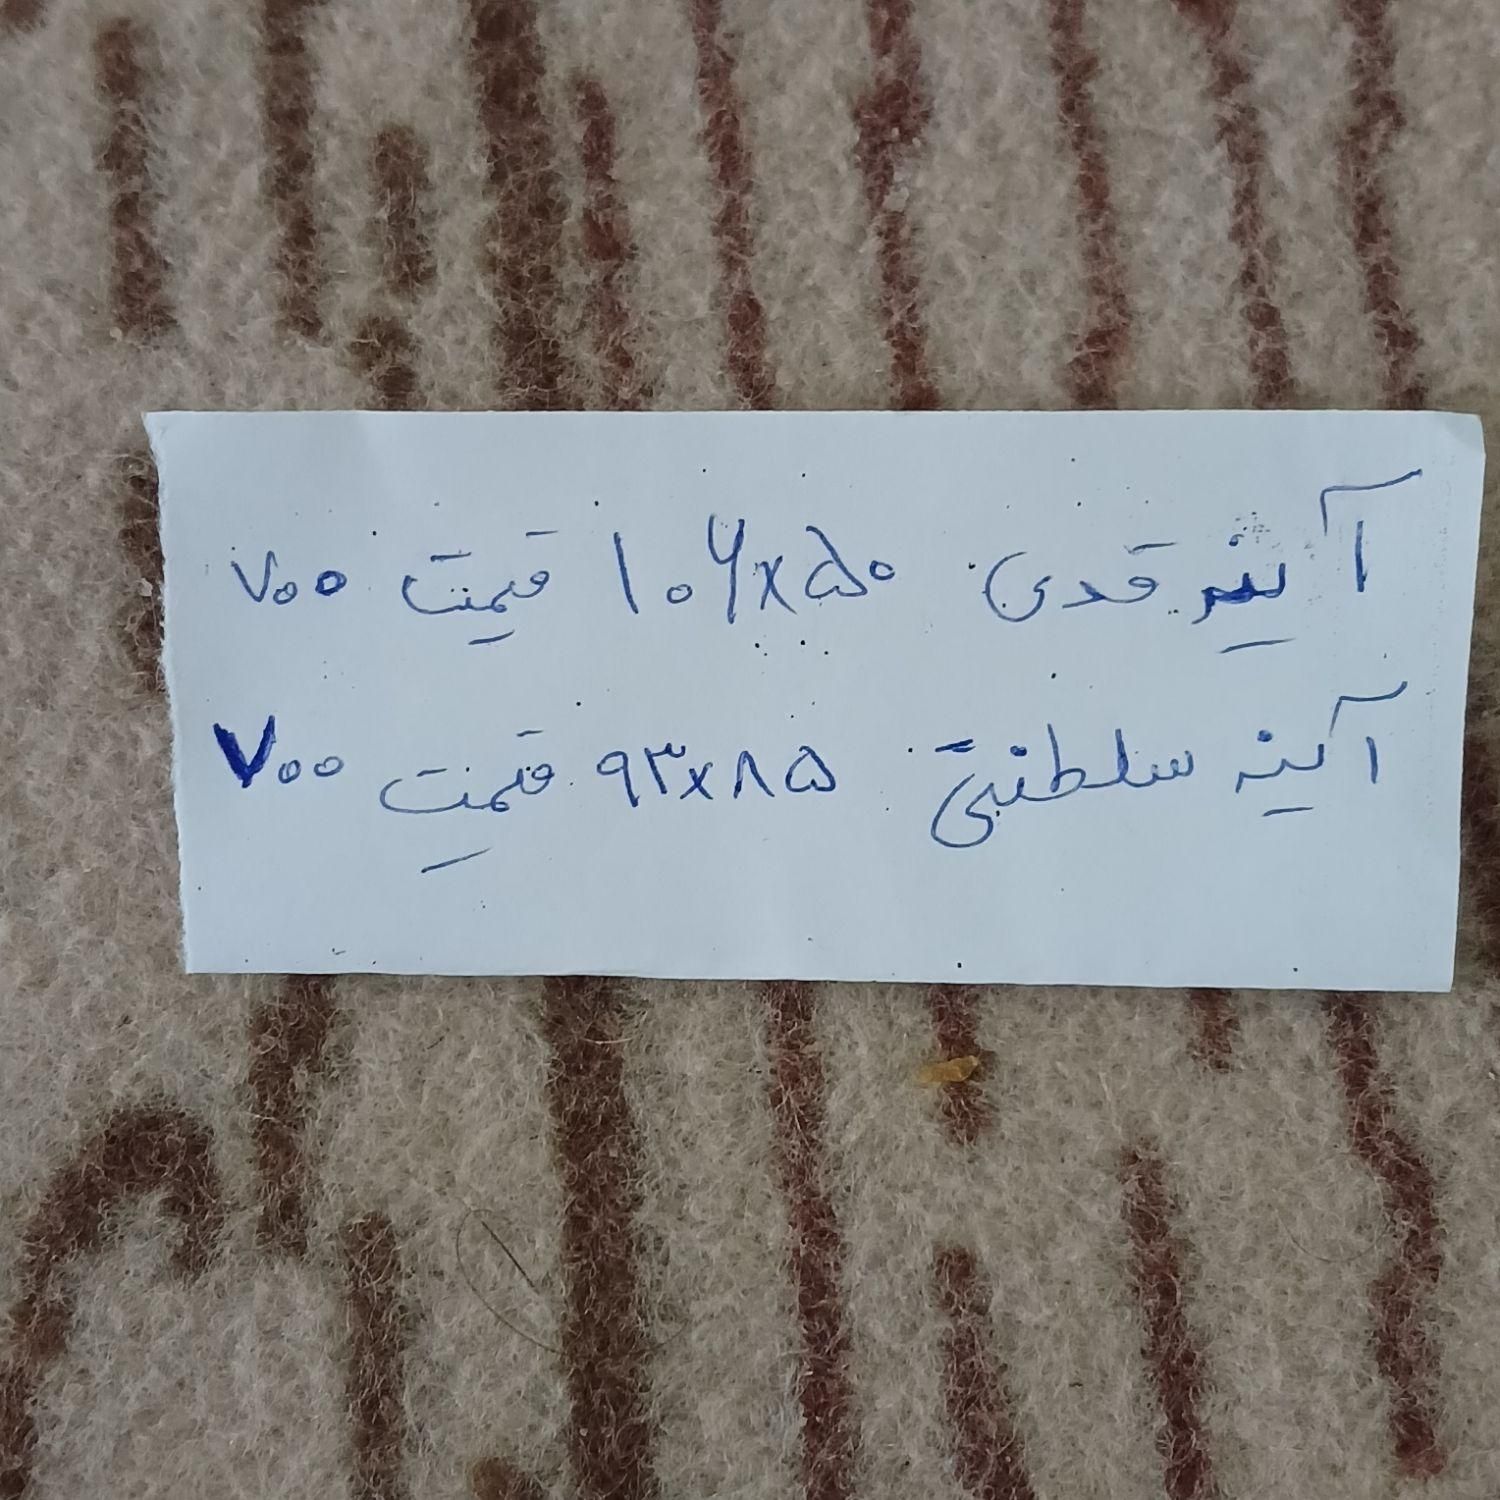 آینه قدی ۱۰۶x۵۰ قیمت ۷۰۰
آینه سلطنتی ۹۳x۸۵ قیمت ۷۰۰